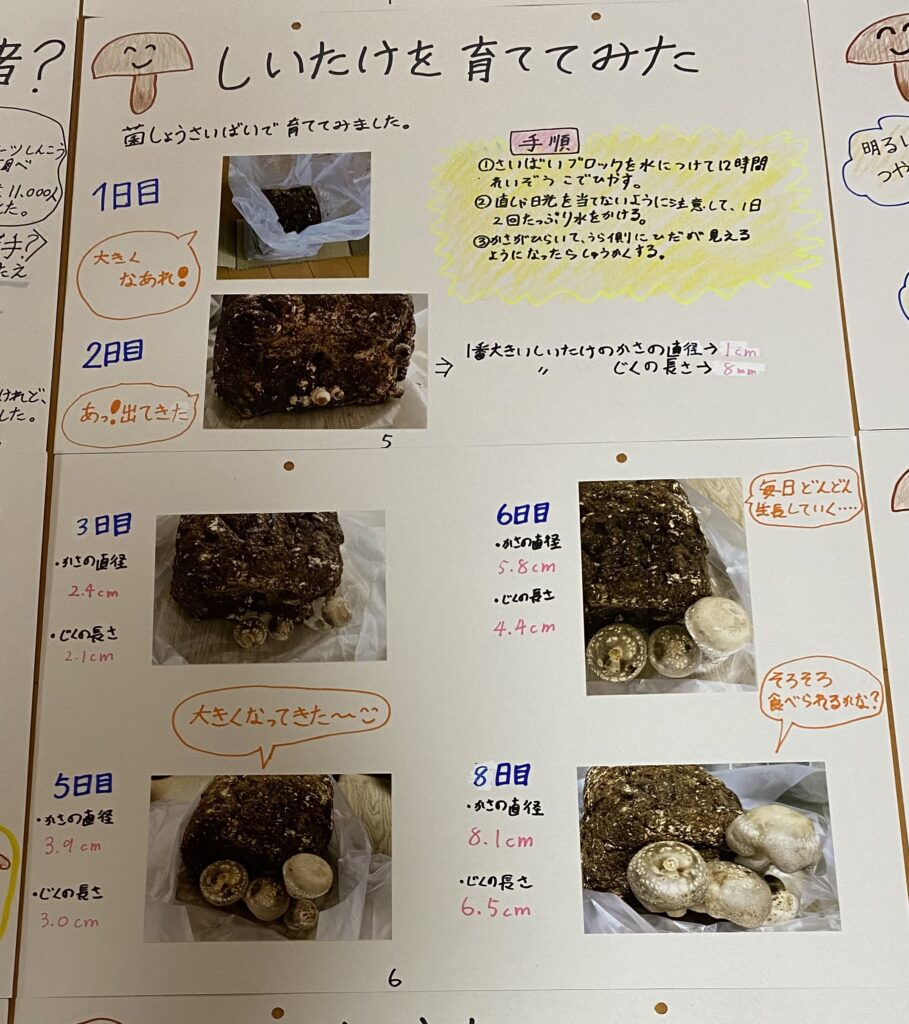 者?
ーツしんこう
11,000人
した。
手?
たえ
けれど、
した。
しいたけを育ててみた
菌しょうさいばいで育ててみました。
1日目
大きく
なあれ!
2日目
あっ!出てきた
手順
①さいばいブロックを水につけて12時間
れいぞうこでひやす。
②直しゃ日光を当てないように注意して、1日
2回たっぷり水をかける。
③かさがひらいて、うら側にひだが見える
ようになったらしゅうかくする。
⇒ 1番大きいしいたけのかさの直径→1cm
〃 じくの長さ→8mm
5
3日目
・かさの直径
2.4cm
・じくの長さ
2.1cm
大きくなってきた〜
5日目
・かさの直径
3.9cm
・じくの長さ
3.0cm
6日目
・かさの直径
5.8cm
・じくの長さ
4.4cm
毎日どんどん
生長していく‥‥
そろそろ
食べられるかな?
8日目
・かさの直径
8.1cm
・じくの長さ
6.5cm
6
明るい
つや